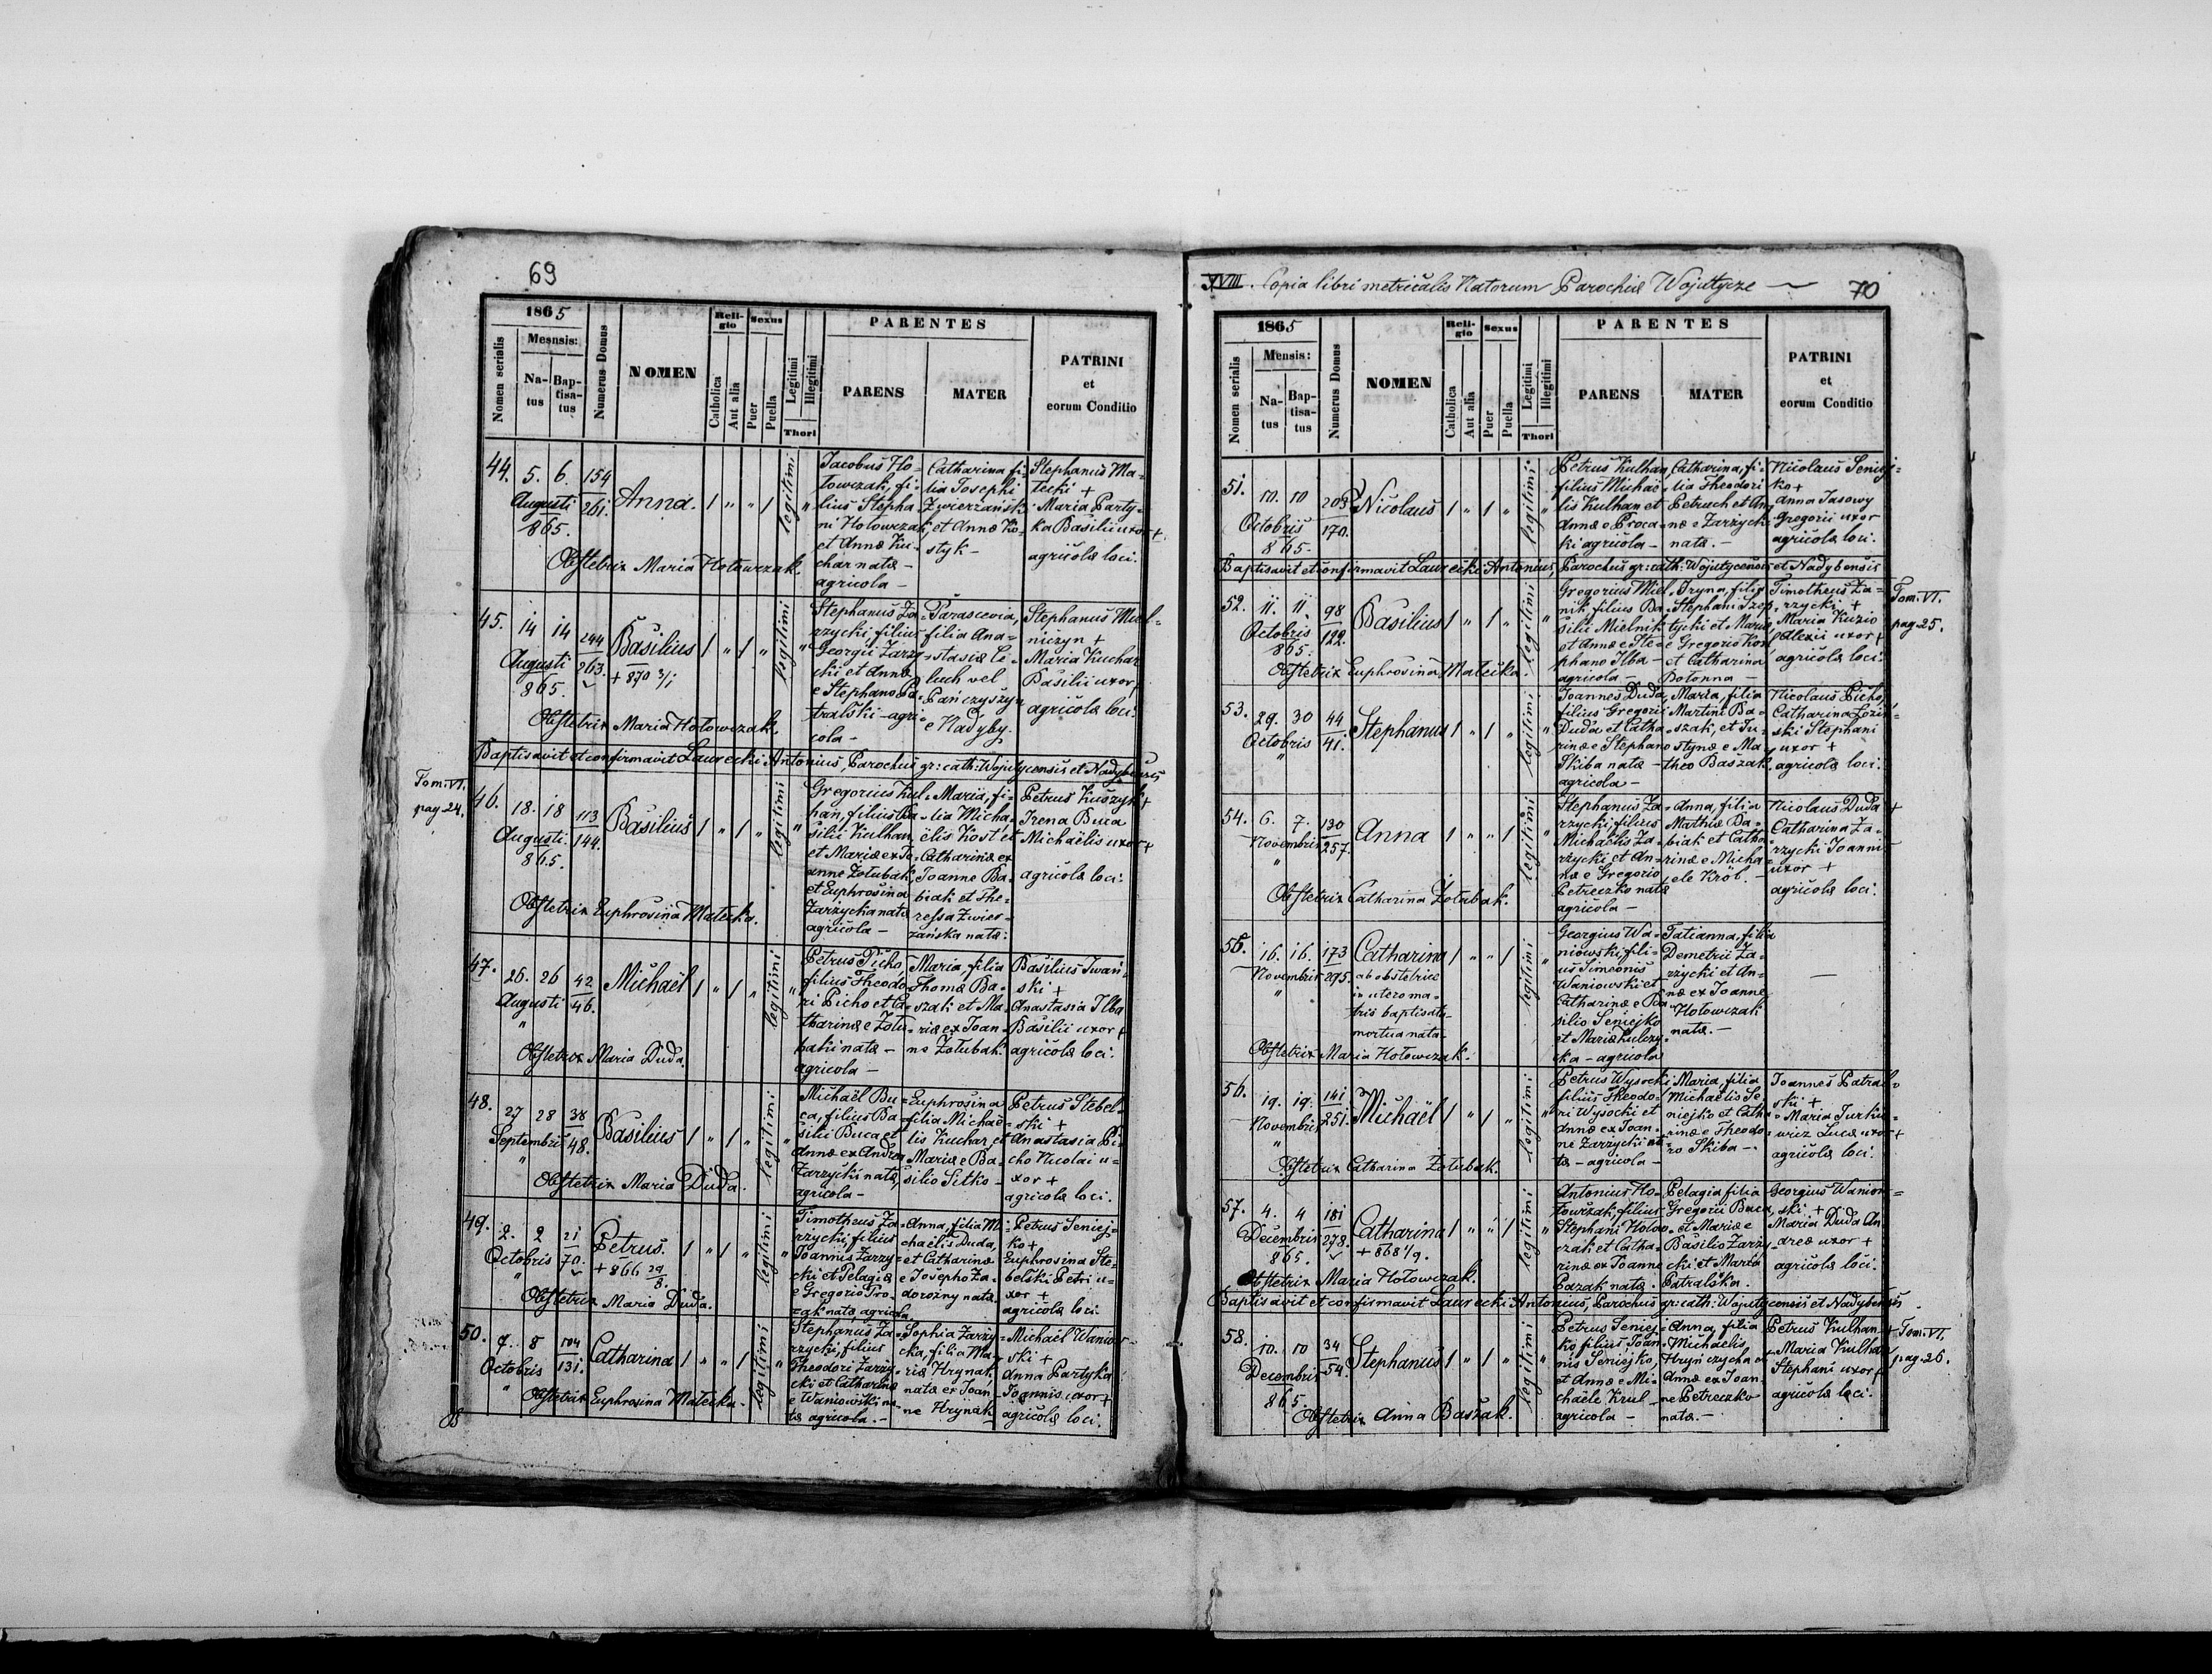 69
1865
Nomen serialis
Mesnsis:
Na-
tus
Bap-
tisa-
tus
Numerus Domus
NOMEN
Reli-
gio
Catholica
Aut alia
Sexus
Puer
Puella
Legitimi
Illegitimi
Thori
PARENTES
PARENS
MATER
PATRINI
et
eorum Conditio
44. 5. 6. 154
Augusti 261.
865.
Anna. 1 " " 1 legitimi "
Jacobus Ho-
łowczak, fi-
lius Stepha-
ni Hołowczak
et Annæ Ku-
char natæ -
agricola -
Catharina fi-
lia Josephi
Zwierzański
et Annæ Ko-
styk -
Stephanus Ma-
tecki +
Maria Party-
ka Basilii uxor +
agricolæ loci.
Obstetrix Maria Hołowczak.
45. 14 14 244
Augusti 263.
865.
Basilius 1 " 1 " legitimi "
+ 870 3/1
Stephanus Za-
rzycki, filius
Georgii Zarzy-
cki et Annæ
e Stephano Pa-
tralski - agri-
cola -
Parascevia,
filia Ana-
stasiæ Ce-
luch vel
Pańczyszyn
e Nadyby.
Stephanus Miel-
niczyn +
Maria Kuchar
Basilii uxor,
agricolæ loci.
Obstetrix Maria Hołowczak.
Baptisavit et confirmavit Laurecki Antonius, Parochus gr: cath: Wojutycensis et Nadybensis
Tom. VI.
pag. 24.
46. 18. 18 113
Augusti. 144.
865.
Basilius 1 " 1 " legitimi "
Gregorius Kul-
han, filius Ba-
silii Kulhan
et Mariæ ex Jo-
anne Zołubak,
et Euphrosina
Zarzycka natæ
agricola -
Maria, fi-
lia Micha-
ëlis Kost et
Catharinæ ex
Joanne Ba-
biak et The-
ressa Zwier-
zańska natæ.
Petrus Kuszyk +
Irena Buca
Michaëlis uxor +
agricolæ loci.
Obstetrix Euphrosina Matecka.
47. 26. 26 42
Augusti 46.
"
Michaël 1 " 1 " legitimi "
Petrus Picho,
filius Theodo-
ri Picho et Ca-
tharinæ e Zołu-
baki natæ -
agricola -
Maria, filia
Thomæ Ba-
szak et Ma-
riæ ex Joan-
ne Zołubak.
Basilius Iwań-
ski +
Anastasia Ilba
Basilii uxor +
agricolæ loci.
Obstetrix Maria Duda.
48. 27 28 38
Septembris 48.
"
Basilius 1 " 1 " legitimi "
Michaël Bu-
ca, filius Ba-
silii Buca et
Annæ ex Andrea
Zarzycki natæ,
agricola -
Euphrosina
filia Michaë-
lis Kuchar et
Mariæ e Ba-
silio Sitko -
Petrus Stebel-
ski +
Anastasia Pi-
cho Nicolai u-
xor +
agricolæ loci.
Obstetrix Maria Duda.
49. 2. 2 21
Octobris 70.
"
Petrus. 1 " 1 " legitimi "
+ 866 29/8.
Timotheus Za-
rzycki, filius
Joannis Zarzy-
cki et Pelagiæ
e Gregorio Pro-
zak natæ, agricola
Anna, filia Mi-
chaëlis Duda,
et Catharinæ
e Josepho Za-
dorożny natæ.
Petrus Seniej-
ko +
Euphrosina Ste-
belski Petri u-
xor +
agricolæ loci.
Obstetrix Maria Duda.
50. 7. 8 104
Octobris 131.
"
Catharina 1 " " 1 legitimi "
Stephanus Za-
rzycki, filius
Theodori Zarzy-
cki et Catharinæ
e Waniowski na-
tæ agricola. -
Sophia Zarzy-
cka, filia Ma-
riæ Hrynak,
natæ ex Joan-
ne Hrynak -
Michaël Waniow-
ski +
Anna Partyka
Joannis uxor +
agricolæ loci.
Obstetrix Euphrosina Matecka.
XVIII. Copia libri metricalis Natorum Parochiæ Wojutycze -
70
1865
Nomen serialis
Mensis:
Na-
tus
Bap-
tisa-
tus
Numerus Domus
NOMEN
Reli-
gio
Catholica
Aut alia
Sexus
Puer
Puella
Legitimi
Illegitimi
Thori
PARENTES
PARENS
MATER
PATRINI
et
eorum Conditio
51. 10. 10 203
Octobris 170.
865.
Nicolaus 1 " 1 " legitimi "
Petrus Kulhan,
filius Michaë-
lis Kulhan et
Annæ e Proca-
ki agricola -
Catharina, fi-
lia Theodori
Petruch et An-
næ e Zarzycki
natæ. -
Nicolaus Seniej-
ko +
Anna Jasowy
Gregorii uxor
agricolæ loci.
Baptisavit et confirmavit Laurecki Antonius, Parochus gr: cath: Wojutycensis et Nadybensis
52. 11. 11. 98
Octobris 122.
865.
Basilius 1 " 1 " legitimi "
Gregorius Miel-
nik, filius Ba-
silii Mielnik
et Annæ e Ste-
phano Ilba -
agricola -
Iryna, filia
Stephani Szep-
tycki et Mariæ
e Gregorio Kon
et Catharina
Bołonna -
Timotheus Za-
rzycki +
Maria Kuzio
Alexii uxor +
agricolæ loci.
Tom. VI.
pag. 25.
Obstetrix Euphrosina Matecka.
53. 29. 30 44
Octobris 41.
"
Stephanus 1 " 1 " legitimi "
Joannes Duda,
filius Gregorii
Duda et Catha-
rinæ e Stephano
Skiba natæ -
agricola -
Maria, filia
Martini Ba-
szak, et Ju-
stynæ e Ma-
theo Baszak.
Nicolaus Picho,
Catharina Łozin-
ski Stephani
uxor +
agricolæ loci.
54. 6. 7. 130
Novembris 257.
"
Anna 1 " " 1 legitimi "
Stephanus Za-
rzycki, filius
Michaëlis Za-
rzycki et An-
næ e Gregorio
Petreczko natæ
agricola -
Anna, filia
Mathiæ Ba-
biak et Catha-
rinæ e Micha-
ele Król. -
Nicolaus Duda +
Catharina Za-
rzycki Joannis
uxor +
agricolæ loci.
Obstetrix Catharina Zołubak.
55. 16. 16. 173
Novembris 295.
"
Catharina 1 " " 1 legitimi "
ab obstetrice
in utero ma-
tris baptisata
mortua nata
Georgius Wa-
niowski, fili-
us Simeonis
Waniowski et
Catharinæ e Ba-
silio Seniejko
et Maria Kulczy-
cka - agricola
Tatianna, filia
Demetrii Za-
rzycki et An-
næ ex Joanne
Hołowczak
natæ. -
-
Obstetrix Maria Hołowczak.
56. 19. 19. 141
Novembris 251.
"
Michaël 1 " 1 " legitimi "
Petrus Wysocki
filius Theodo-
ri Wysocki et
Annæ ex Joan-
ne Zarzycki na-
tæ - agricola -
Maria, filia
Michaëlis Se-
niejko et Catha-
rinæ e Theodo-
ro Skiba -
Joannes Patral-
ski +
Maria Jurkie-
wicz Lucæ uxor +
agricolæ loci.
Obstetrix Catharina Zołubak.
57. 4. 4 181
Decembris 278.
865.
Catharina 1 " " 1 legitimi "
+ 868 1/9.
Antonius Ho-
łowczak, filius
Stephani Hołow-
czak et Catha-
rinæ ex Joanne
Pazak natæ.
Pelagia filia
Gregorii Buca,
et Mariæ e
Basilio Zarzy-
cki et Maria
Patralska.
Georgius Waniow-
ski +
Maria Duda An-
dreæ uxor +
agricolæ loci.
Obstetrix Maria Hołowczak.
Baptisavit et confirmavit Laurecki Antonius, Parochus gr: cath: Wojutycensis et Nadybensis
58. 10. 10 34
Decembris 54.
865.
Stephanus 1 " 1 " legitimi "
Petrus Seniej-
ko filius Joan-
nis Seniejko,
et Annæ e Mi-
chaële Krul -
agricola -
Anna, filia
Michaëlis
Hryńczycha et
Annæ ex Joan-
ne Petreczko
natæ. -
Petrus Kulhan +
Maria Kulhan
Stephani uxor +
agricolæ loci.
Tom. VI.
pag. 26.
Obstetrix Anna Baszak.